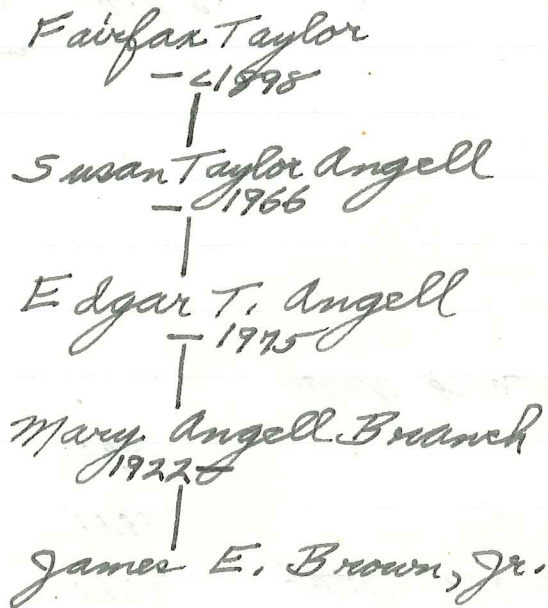 Fairfax Taylor
- c1898
Susan Taylor Angell
- 1966
Edgar T. Angell
- 1975
Mary Angell Branch
1922-
James E. Brown, Jr.